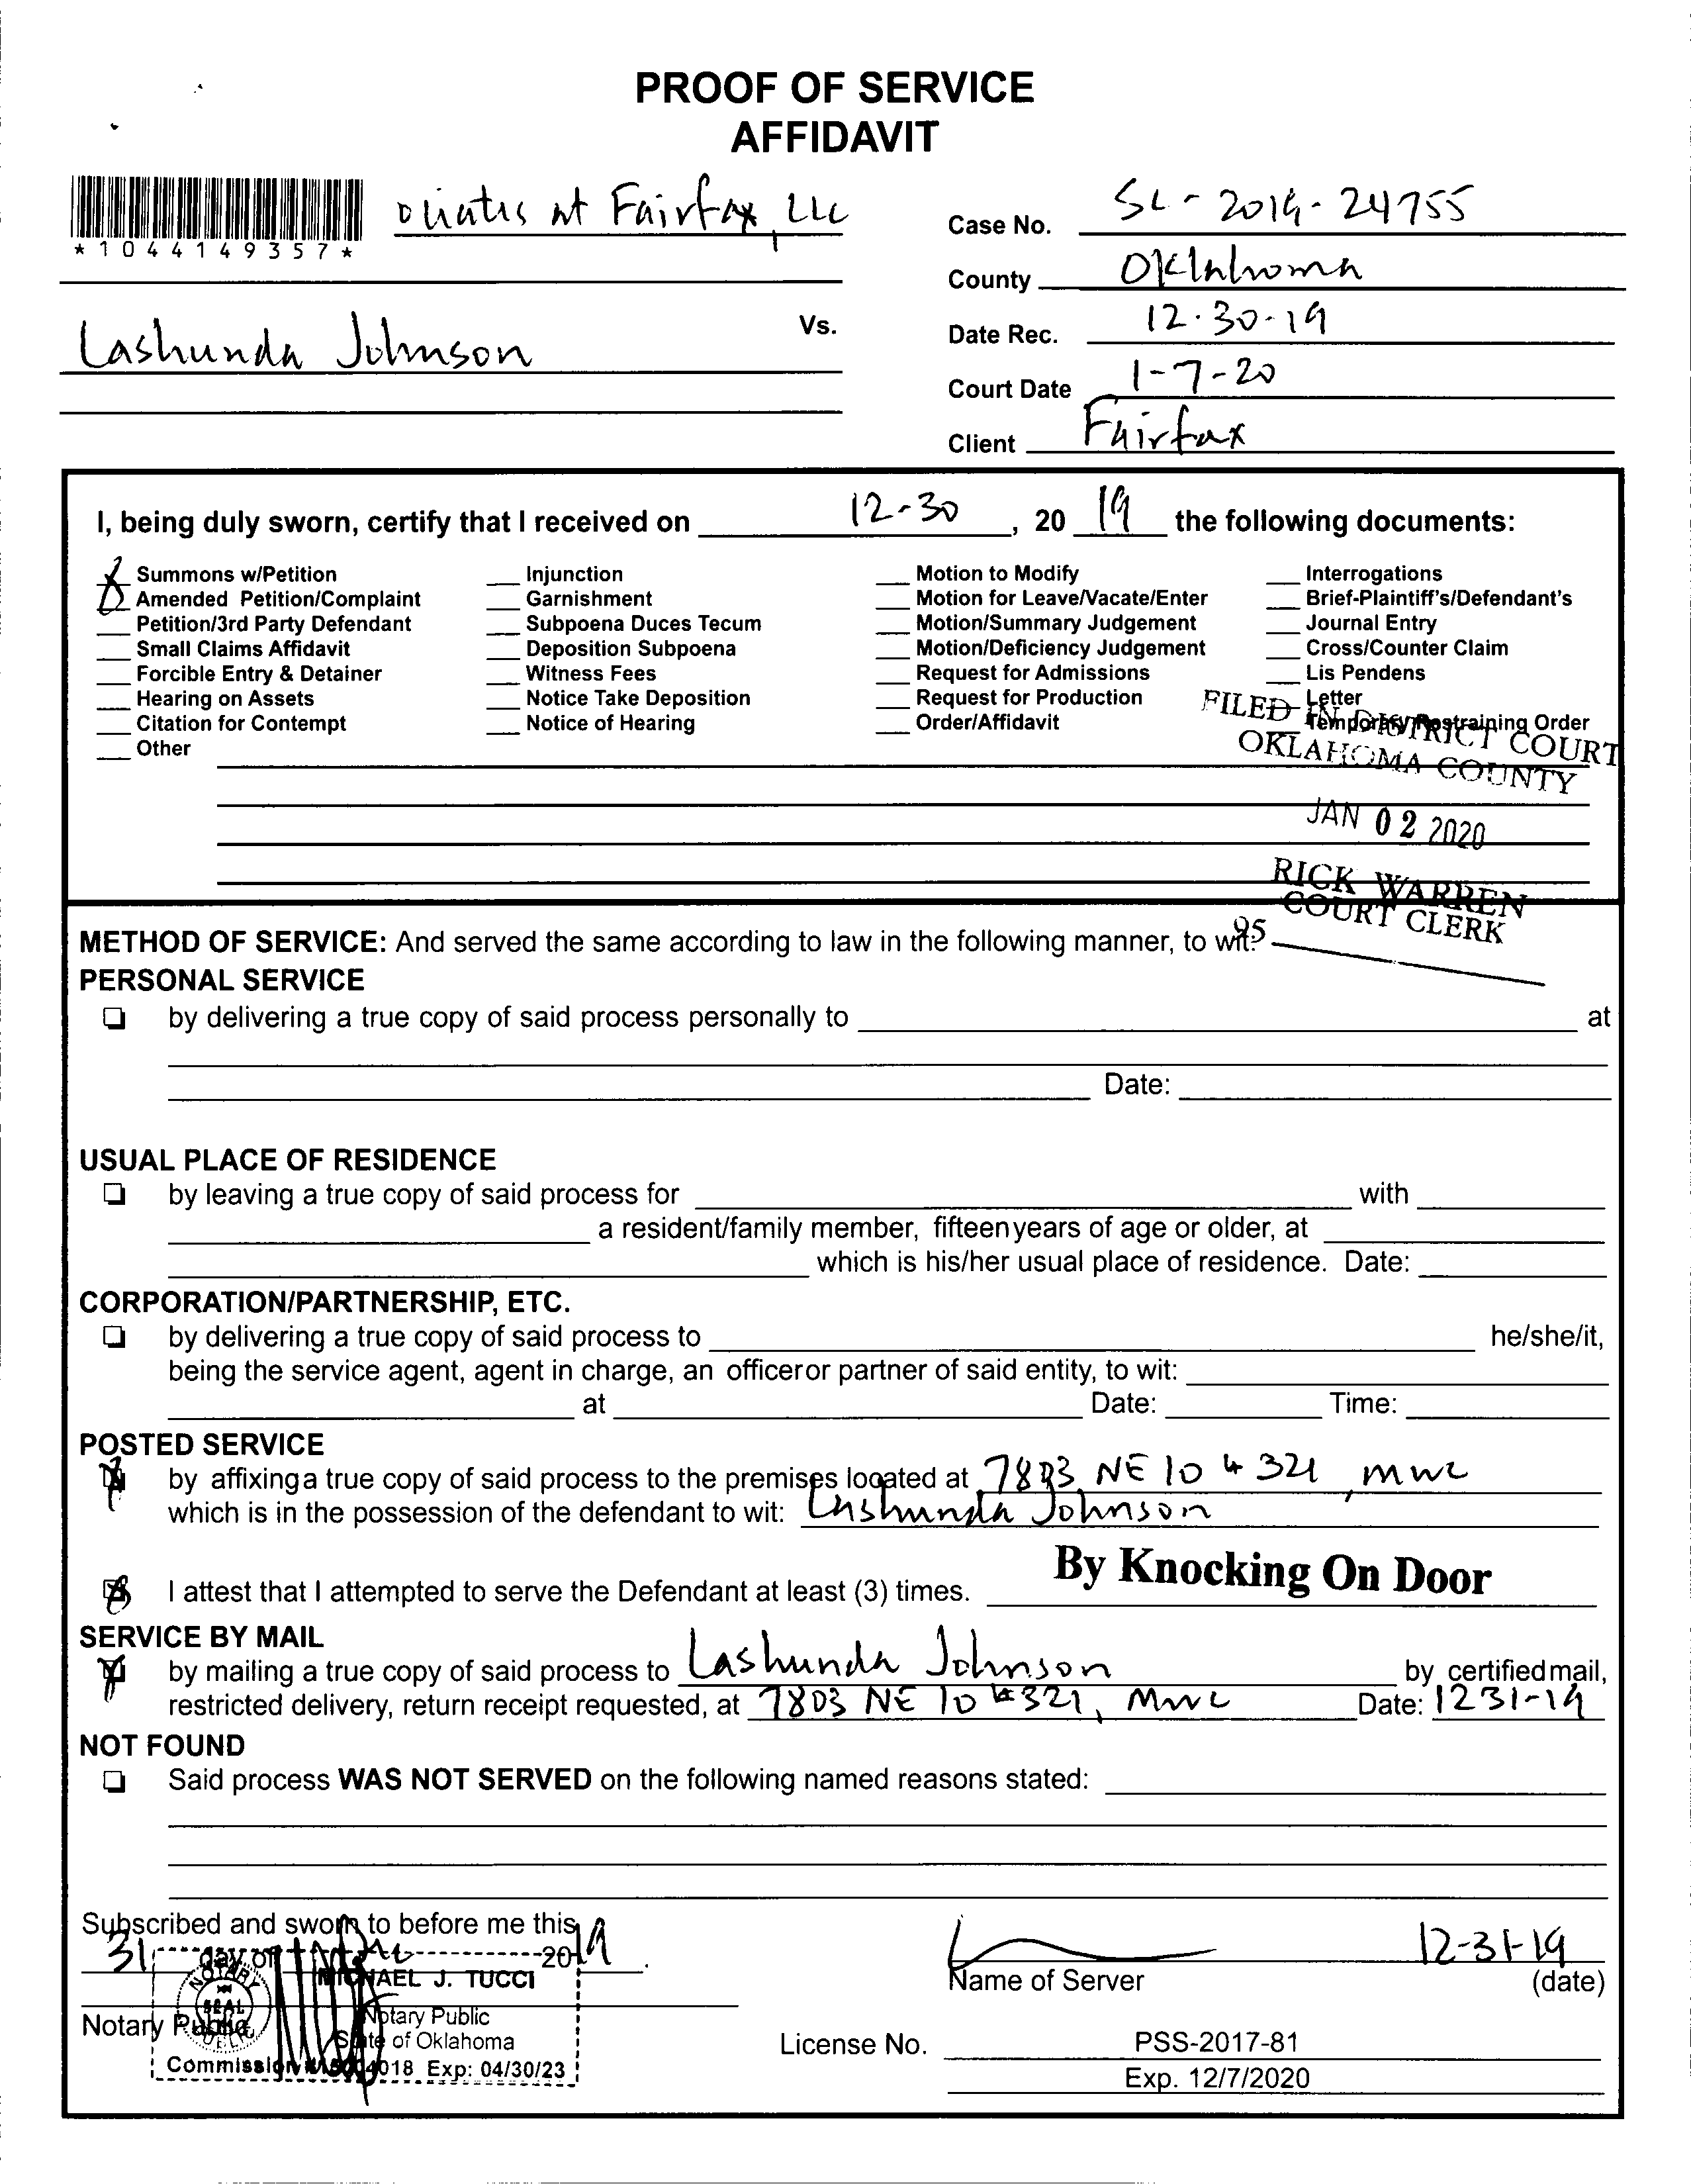 PROOF OF SERVICE
AFFIDAVIT
*1044149357*
ociates at Fairfax, LLC
Case No. SC-2019-24755
County Oklahoma
Vs.
Date Rec. 12-30-19
Lashunda Johnson
Court Date 1-7-20
Client Fairfax
I, being duly sworn, certify that I received on 12-30, 20 19 the following documents:
Summons w/Petition
Amended Petition/Complaint
Petition/3rd Party Defendant
Small Claims Affidavit
Forcible Entry & Detainer
Hearing on Assets
Citation for Contempt
Other
Injunction
Garnishment
Subpoena Duces Tecum
Deposition Subpoena
Witness Fees
Notice Take Deposition
Notice of Hearing
Motion to Modify
Motion for Leave/Vacate/Enter
Motion/Summary Judgement
Motion/Deficiency Judgement
Request for Admissions
Request for Production
Order/Affidavit
Interrogations
Brief-Plaintiff's/Defendant's
Journal Entry
Cross/Counter Claim
Lis Pendens
Letter
Temporary Restraining Order
FILED IN DISTRICT COURT
OKLAHOMA COUNTY
JAN 02 2020
RICK WARREN
COURT CLERK
95
METHOD OF SERVICE: And served the same according to law in the following manner, to wit:
PERSONAL SERVICE
by delivering a true copy of said process personally to at
Date:
USUAL PLACE OF RESIDENCE
by leaving a true copy of said process for with
a resident/family member, fifteen years of age or older, at
which is his/her usual place of residence. Date:
CORPORATION/PARTNERSHIP, ETC.
by delivering a true copy of said process to he/she/it,
being the service agent, agent in charge, an officer or partner of said entity, to wit:
at Date: Time:
POSTED SERVICE
by affixing a true copy of said process to the premises located at 7803 NE 10 # 321, MWC
which is in the possession of the defendant to wit: Lashunda Johnson
By Knocking On Door
I attest that I attempted to serve the Defendant at least (3) times.
SERVICE BY MAIL
by mailing a true copy of said process to Lashunda Johnson by certified mail,
restricted delivery, return receipt requested, at 7803 NE 10 #321, MWC Date: 12 31-19
NOT FOUND
Said process WAS NOT SERVED on the following named reasons stated:
Subscribed and sworn to before me this
31 day of Dec 2019.
Notary Public
NOTARY
SEAL
PUBLIC
MICHAEL J. TUCCI
Notary Public
State of Oklahoma
Commission Exp: 04/30/23
12-31-19
Name of Server (date)
License No. PSS-2017-81
Exp. 12/7/2020